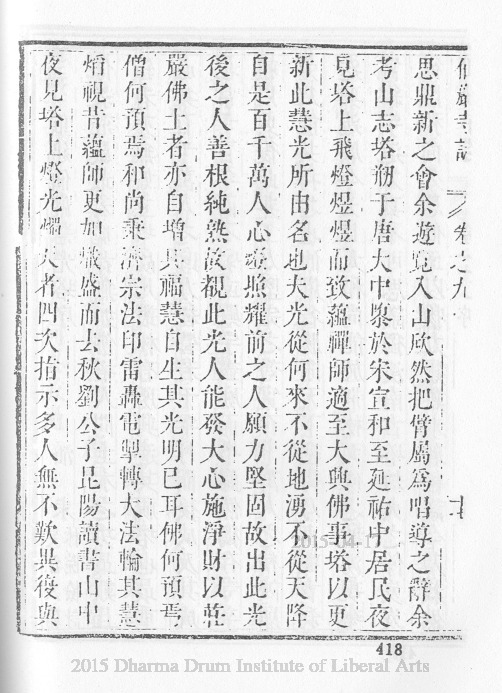 仙巖寺誌 卷之九 十七
思鼎新之會余遊覽入山欣然把臂屬為唱導之辭余
考山志塔剏于唐大中隳於宋宣和至延祐中居民夜
見塔上飛燈煜煜而致蘊禪師適至大興佛事塔以更
新此慧光所由名也夫光從何來不從地湧不從天降
自是百千萬人心燈照耀前之人願力堅固故出此光
後之人善根純熟故覩此光人能發大心施淨財以莊
嚴佛土者亦自增其福慧自生其光明已耳佛何預焉
僧何預焉和尚秉濟宗法印雷轟電掣轉大法輪其慧
焰視昔蘊師更加熾盛而去秋劉公子昆陽讀書山中
夜見塔上燈光爛天者四次指示多人無不歎異復與
418
2015 Dharma Drum Institute of Liberal Arts